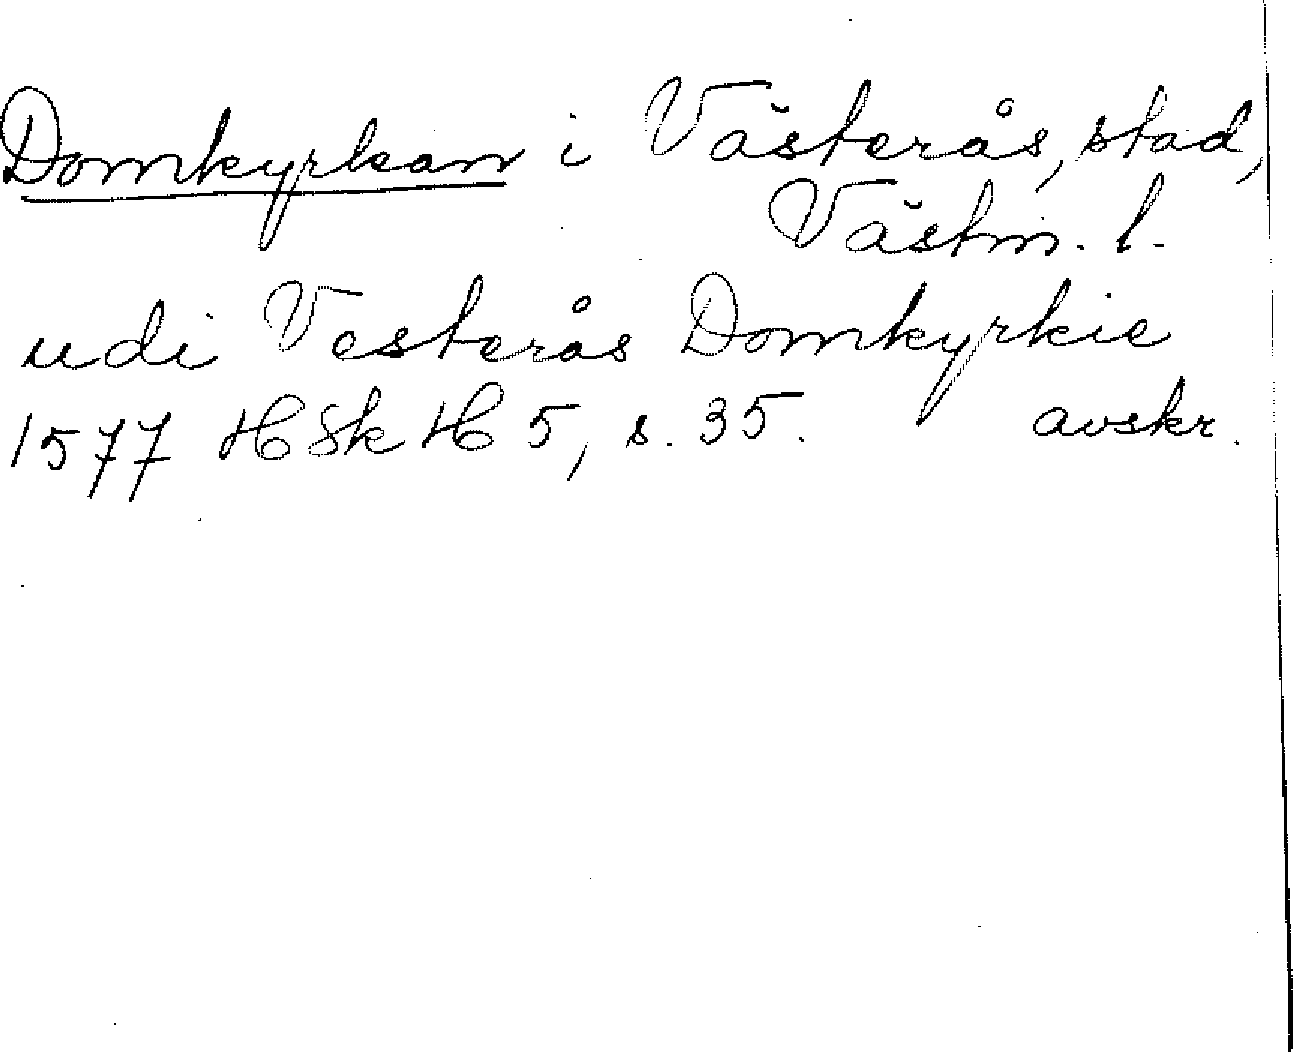 Domkyrkan i Västerås, stad,
Västm. l.
udi Vesterås Domkyrkie
1577 HSkH 5, s. 35. avskr.